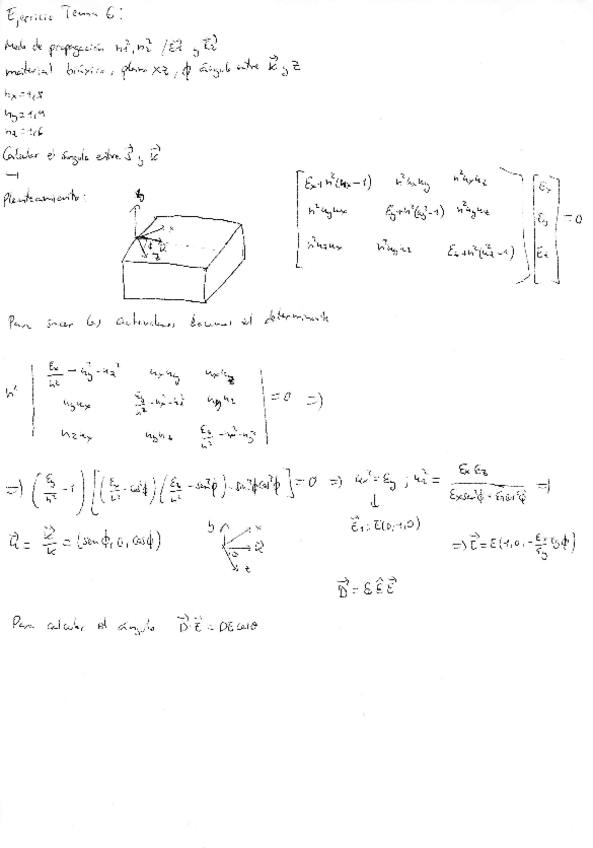 Ejercicio Tema 6:
Modo de propagación n₁², n₂² / E⃗1 y E⃗2
material biáxico, plano xz, ϕ ángulo entre k⃗ y z
nx = 1,5
ny = 1,4
nz = 1,6
Calcular el ángulo entre S⃗ y k⃗
Planteamiento:
y
x
ϕ
z
[ εx+n²(ux²-1) n²uxuy n²uxuz ] [ Ex ]
[ n²uyux εy+n²(uy²-1) n²uyuz ] [ Ey ] = 0
[ n²uzux n²uyuz εz+n²(uz²-1) ] [ Ez ]
Para sacar los autovalores hacemos el determinante
| εx/n² - uy² - uz² uxuy uxuz |
| uyux εy/n² - ux² - uz² uyuz | = 0 =>
| uzux uyuz εz/n² - ux² - uy² |
=> (εy/n² - 1) [(εx/n² - cos²ϕ)(εz/n² - sen²ϕ) - sen²ϕcos²ϕ] = 0 => n₁² = εy ; n₂² = εxεz / (εxsen²ϕ + εzcos²ϕ) =>
↓
E⃗1 = E(0,1,0)
u⃗ = k⃗/k = (senϕ, 0, cosϕ)
y
x
z
D⃗ = ε ε̂ E⃗
Para calcular el ángulo D⃗·E⃗ = DE cosθ